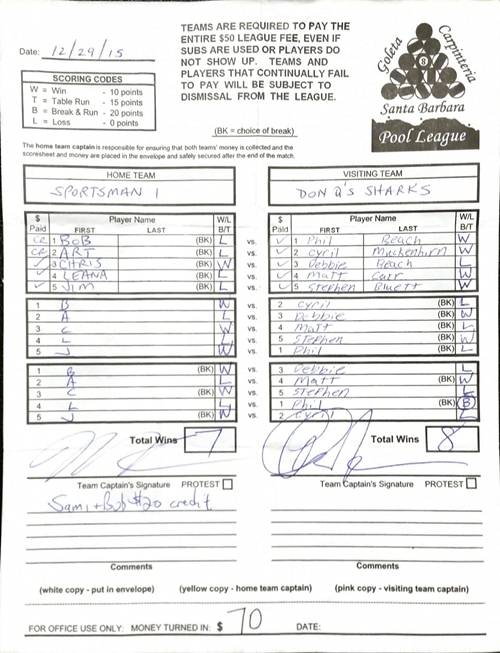 TEAMS ARE REQUIRED TO PAY THE
ENTIRE $50 LEAGUE FEE, EVEN IF
SUBS ARE USED OR PLAYERS DO
NOT SHOW UP. TEAMS AND
PLAYERS THAT CONTINUALLY FAIL
TO PAY WILL BE SUBJECT TO
DISMISSAL FROM THE LEAGUE.
Date: 12/29/15
SCORING CODES
W = Win - 10 points
T = Table Run - 15 points
B = Break & Run - 20 points
L = Loss - 0 points
(BK = choice of break)
Goleta
Carpinteria
8
Santa Barbara
Pool League
The home team captain is responsible for ensuring that both teams' money is collected and the
scoresheet and money are placed in the envelope and safely secured after the end of the match.
HOME TEAM VISITING TEAM
SPORTSMAN 1 DON Q'S SHARKS
$ Paid Player Name FIRST LAST W/L B/T $ Paid Player Name FIRST LAST W/L B/T
CR 1 BOB (BK) L vs. ✓ 1 Phil Beach W
CR 2 ART (BK) L vs. ✓ 2 Cyril Muckenhirn W
✓ 3 CHRIS (BK) W vs. ✓ 3 Debbie Beach L
✓ 4 LEANA (BK) L vs. ✓ 4 Matt Carr W
✓ 5 JIM (BK) L vs. ✓ 5 Stephen Bluett W
1 B W vs. 2 Cyril (BK) L
2 A L vs. 3 Debbie (BK) W
3 C W vs. 4 Matt (BK) L
4 L L vs. 5 Stephen (BK) W
5 J W vs. 1 Phil (BK) L
1 B (BK) W vs. 3 Debbie L
2 A L vs. 4 Matt (BK) W
3 C (BK) W vs. 5 Stephen L
4 L L vs. 1 Phil (BK) B
5 J (BK) W vs. 2 Cyril L
Total Wins 7 Total Wins 8
Team Captain's Signature PROTEST Team Captain's Signature PROTEST
Sami + Bob $20 credit
Comments Comments
(white copy - put in envelope) (yellow copy - home team captain) (pink copy - visiting team captain)
FOR OFFICE USE ONLY: MONEY TURNED IN: $ 70 DATE: